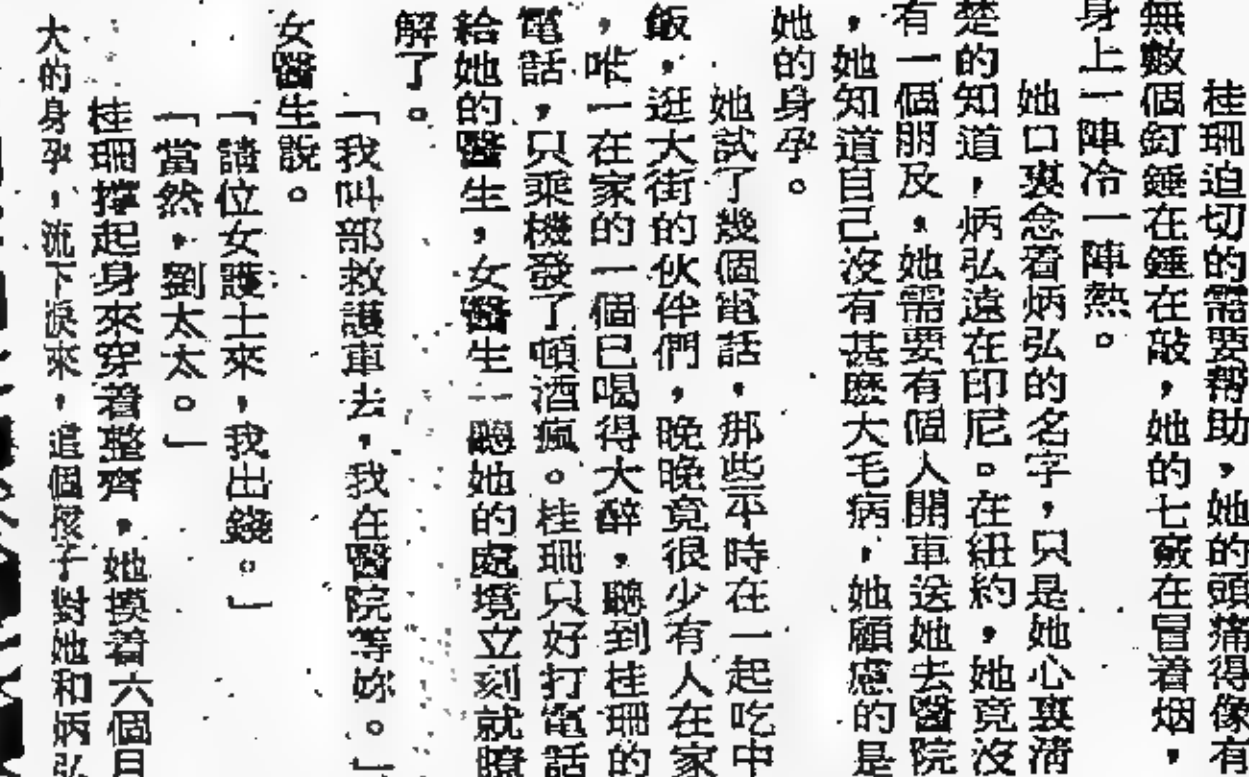 桂珊迫切的需要帮助，她的頭痛得像有
無數個釘錘在錘在敲，她的七竅在冒着烟，
身上一陣冷一陣熱。
她口裏念着炳弘的名字，只是她心裏清
楚的知道，炳弘遠在印尼。在紐約，她竟没
有一個朋及，她需要有個人開車送她去醫院
，她知道自己沒有甚麽大毛病，她顧慮的是
她的身孕。
她試了幾個電話，那些平時在一起吃中
飯，逛大街的伙伴們，晚晚竟很少有人在家
，唯一在家的一個已喝得大醉，聽到桂珊的
電話，只乘機發了頓酒瘋。桂珊只好打電話
給她的醫生，女醫生一聽她的處境立刻就瞭
解了。
「我叫部救護車去，我在醫院等妳。」
女醫生說。
「請位女護士來，我出錢。」
「當然，劉太太。」
桂珊撑起身來穿着整齊，她摸着六個月
大的身孕，流下淚來，這個孩子對她和炳弘